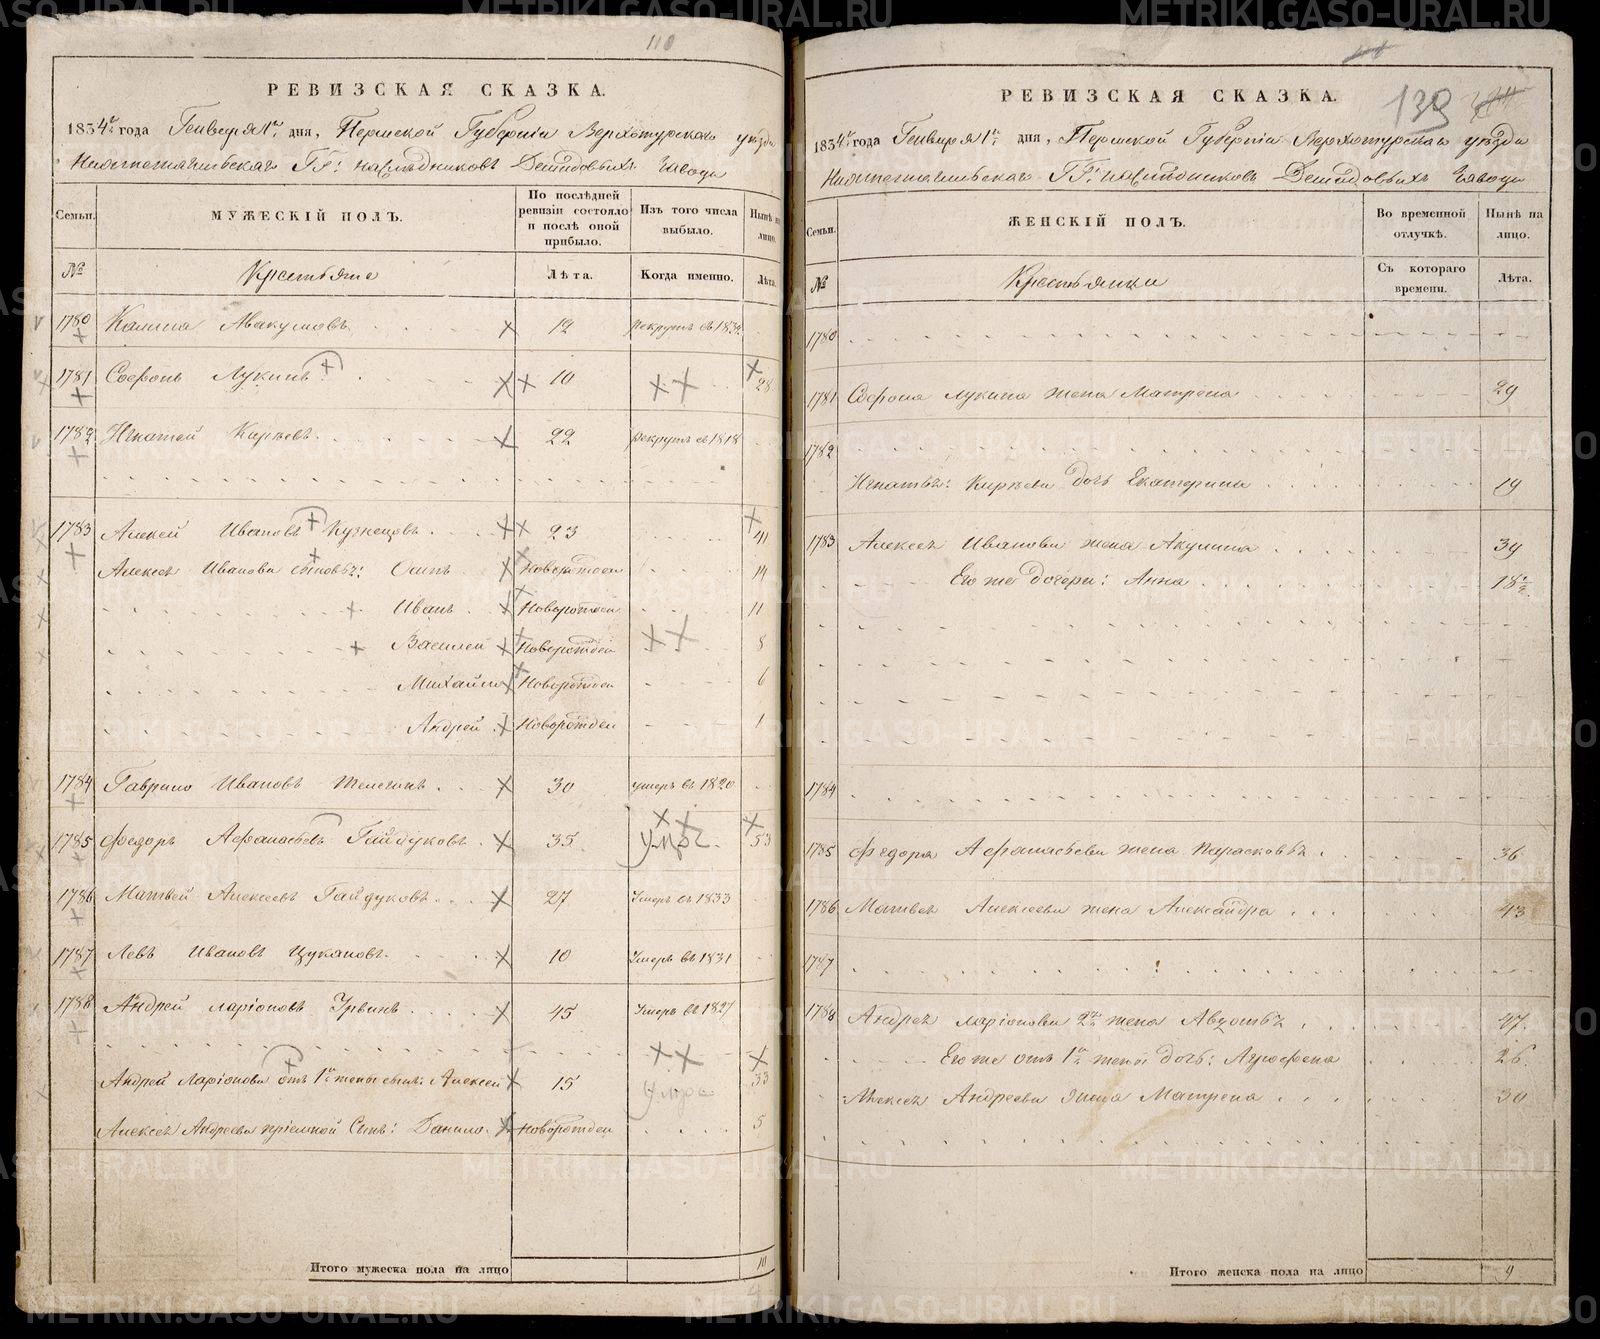 110
РЕВИЗСКАЯ СКАЗКА.
1834го года Генваря 1го дня, Пермской Губерніи Верхотурскаго уезда
Нижнетагильскаго ГГ: наследниковъ Демидовыхъ завода
Семьи.
МУЖЕСКІЙ ПОЛЪ.
По послѣдней ревизіи состояло и послѣ оной прибыло.
Изъ того числа выбыло.
Нынѣ на лицо.
№
Крестьяне
Лѣта.
Когда именно.
Лѣта.
1780 Авакумовъ 12 рекрутъ въ 1832
1781 Софронъ Лукинъ 10 28
1782 Игнатей Карпевъ 22 рекрутъ въ 1818
1783 Алексей Ивановъ Кузнецовъ 23 41
Алексея Иванова сыновья: Осипъ Новорожден 14
Иванъ Новорожден 11
Василей Новорожден 8
Михайло Новорожден 6
Андрей Новорожден 1
1784 Гаврило Ивановъ 30 умеръ въ 1820
1785 Федоръ Афанасьевъ Гайдуковъ 35 умре 53
1786 Матвей Алексеевъ Гайдуковъ 27 Умеръ въ 1833
1787 Левъ Ивановъ Цукановъ 10 Умеръ въ 1831
1788 Андрей Ларіоновъ 45 Умеръ въ 1827
Андрея Ларіонова отъ 1й жены сынъ: Алексей 15 умре 33
Алексея Андреева пріемной Сынъ: Данило Новорожден 5
Итого мужеска пола на лицо 10
139
РЕВИЗСКАЯ СКАЗКА.
1834го года Генваря 1го дня, Пермской Губерніи Верхотурскаго уезда
Нижнетагильскаго ГГ: наследниковъ Демидовыхъ завода
Семьи.
ЖЕНСКІЙ ПОЛЪ.
Во временной отлучкѣ.
Нынѣ на лицо.
№
Крестьянки
Съ котораго времени.
Лѣта.
1780
1781 Софрона Лукина жена Матрена 29
1782
Игнатья: Карпева дочь Екатерина 19
1783 Алексея Иванова жена Акулина 39
Его же дочери: Анна 18
1784
1785 Федора Афанасьева жена Парасковья 36
1786 Матвея Алексеева жена Александра 43
1787
1788 Андрея Ларіонова 2я жена Авдотья 47
Его же отъ 1й жены дочь: 26
Алексея Андреева жена Матрена 30
Итого женска пола на лицо 9
METRIKI.GASO-URAL.RU